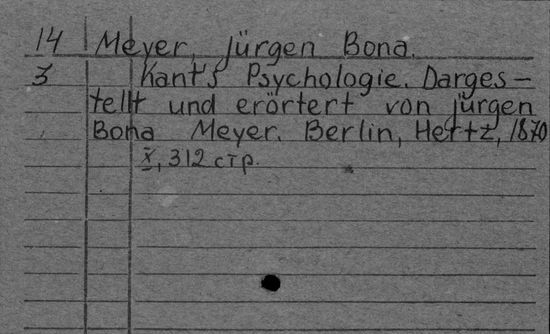 14 Meyer, Jürgen Bona.
3 Kant's Psychologie. Darges-
tellt und erörtert von Jürgen
Bona Meyer. Berlin, Hertz, 1870
X, 312 стр.